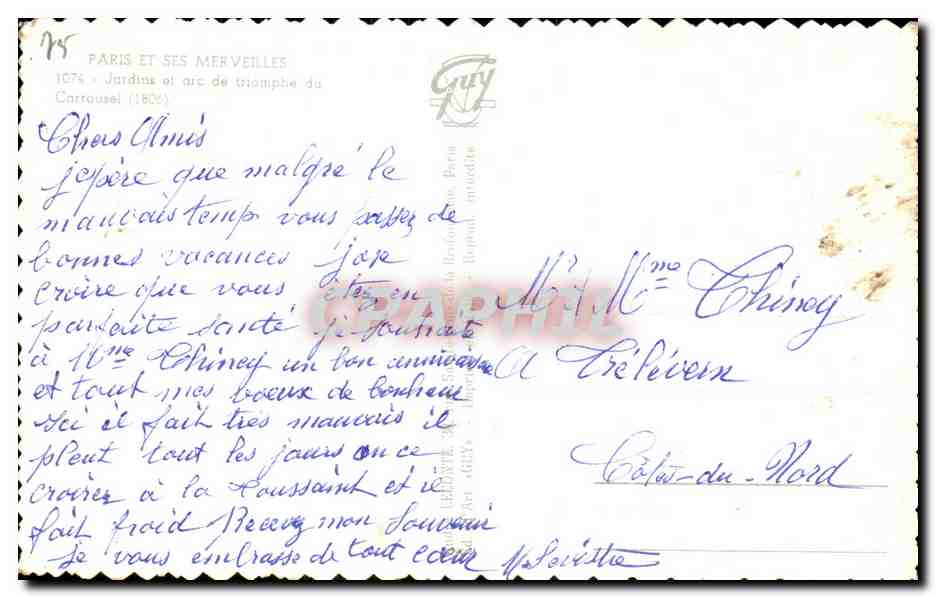 75
PARIS ET SES MERVEILLES
1074 - Jardins et arc de triomphe du
Carrousel (1806)
Guy
Chers Amis
j'espère que malgré le
mauvais temp vous passez de
bonnes vacances jose
croire que vous êtez en
parfaite santé je souhaite
à Mme Thiney un bon anniversaire
et tout mes voeux de bonheur
Ici il fait très mauvais il
pleut tout les jours on ce
croirez à la Toussaint et il
fait froid Recevez mon Souvenir
Je vous embrasse de tout coeur
Mr & Mme Thiney
A Trélévern
Côtes-du-Nord
CARPHIL